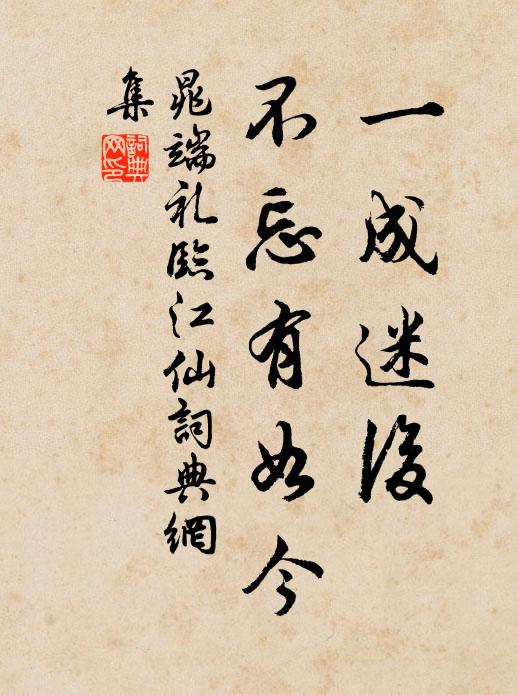 一成迷後
不忘有如今
晁端礼臨江仙詞典網
集
詞典網印